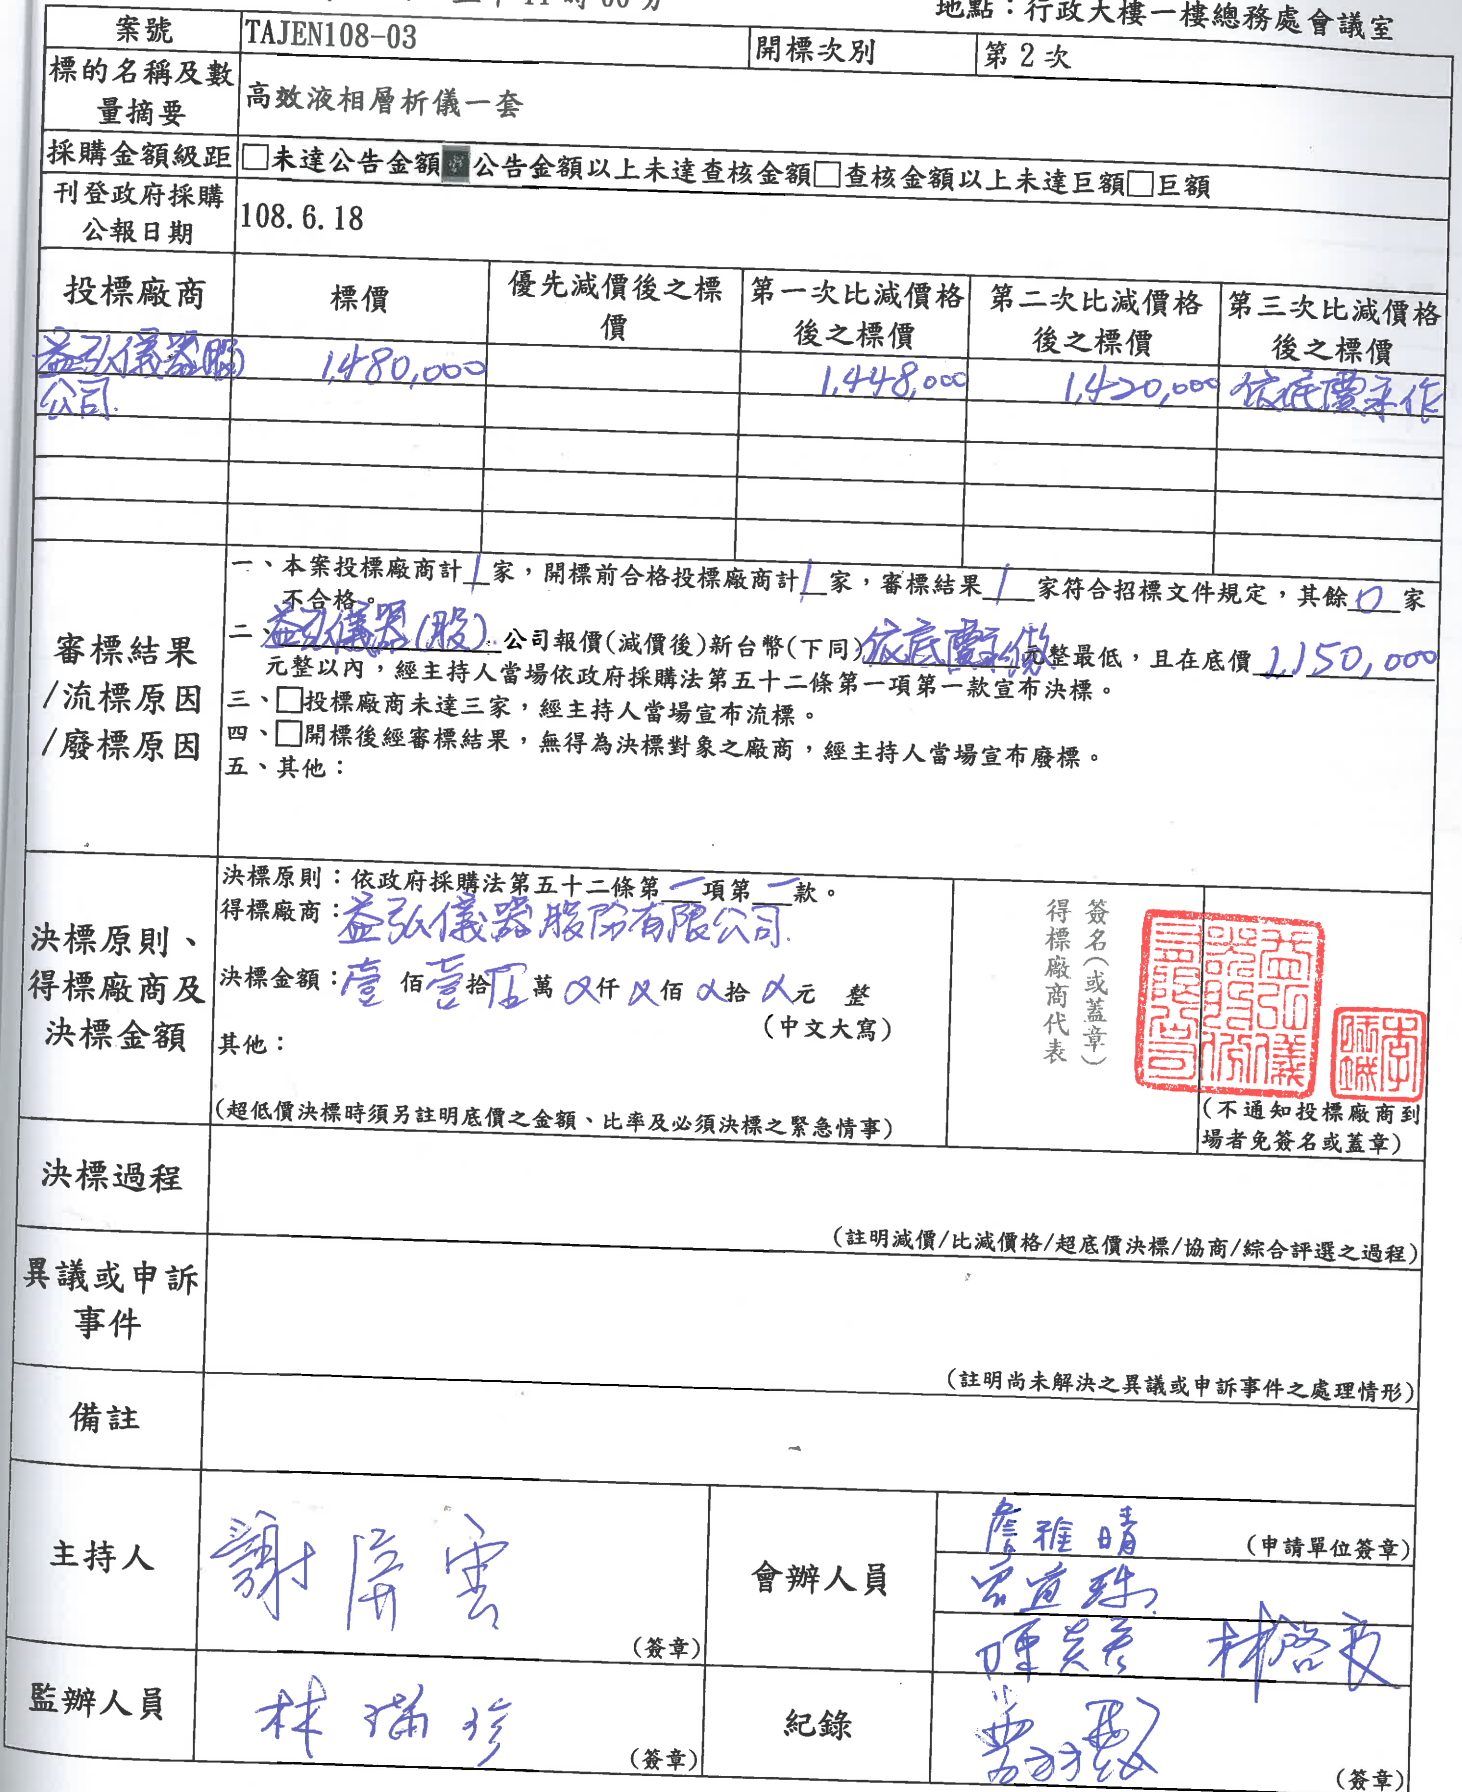 地點：行政大樓一樓總務處會議室
案號 TAJEN108-03 開標次別 第 2 次
標的名稱及數量摘要 高效液相層析儀一套
採購金額級距 □未達公告金額■公告金額以上未達查核金額□查核金額以上未達巨額□巨額
刊登政府採購公報日期 108.6.18
投標廠商 標價 優先減價後之標價 第一次比減價格後之標價 第二次比減價格後之標價 第三次比減價格後之標價
益弘儀器(股)公司. 1,480,000 1,448,000 1,420,000 依底價承作
審標結果/流標原因/廢標原因
一、本案投標廠商計1家，開標前合格投標廠商計1家，審標結果1家符合招標文件規定，其餘0家
不合格。
二、益弘儀器(股).公司報價(減價後)新台幣(下同)依底價承做元整最低，且在底價1,150,000
元整以內，經主持人當場依政府採購法第五十二條第一項第一款宣布決標。
三、□投標廠商未達三家，經主持人當場宣布流標。
四、□開標後經審標結果，無得為決標對象之廠商，經主持人當場宣布廢標。
五、其他：
決標原則、得標廠商及決標金額
決標原則：依政府採購法第五十二條第一項第一款。
得標廠商：益弘儀器股份有限公司.
決標金額：壹佰壹拾伍萬 仟 佰 拾 元 整
(中文大寫)
其他：
(超低價決標時須另註明底價之金額、比率及必須決標之緊急情事)
得標廠商代表
簽名(或蓋章)
益弘儀器股份有限公司
(不通知投標廠商到
場者免簽名或蓋章)
決標過程
(註明減價/比減價格/超底價決標/協商/綜合評選之過程)
異議或申訴事件
(註明尚未解決之異議或申訴事件之處理情形)
備註
主持人 謝 雲 (簽章)
會辦人員 詹雅晴 (申請單位簽章)
林啓文
監辦人員 林 珍 (簽章)
紀錄 (簽章)